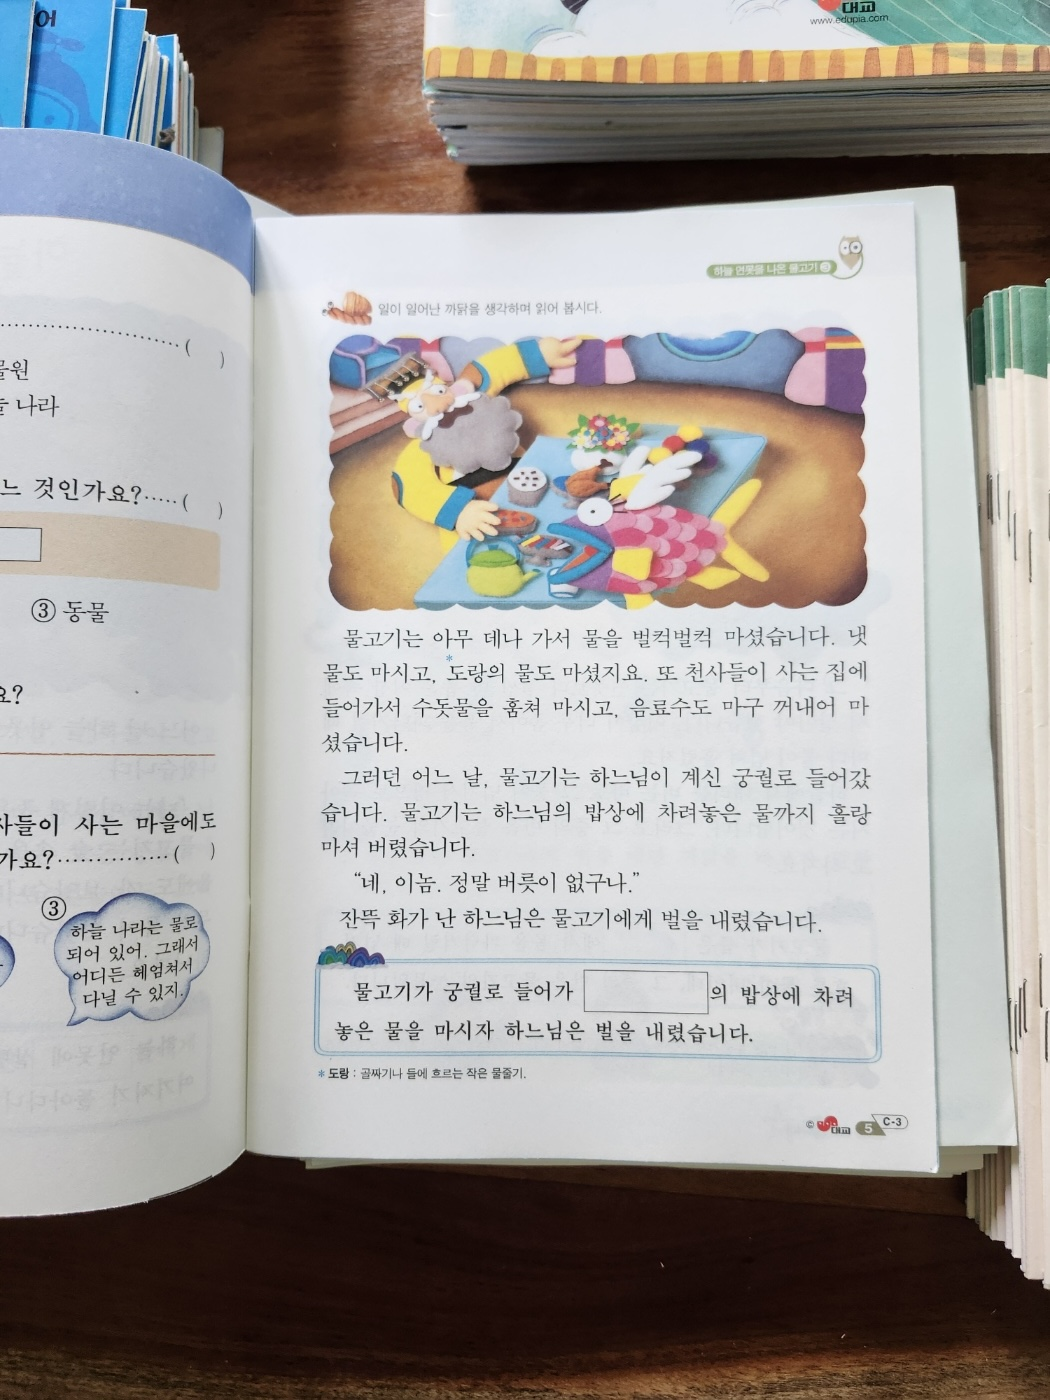 어
대교
www.edupia.com
( )
나라
느 것인가요?·····( )
③ 동물
요?
사들이 사는 마을에도
가요?··············( )
③
하늘 나라는 물로
되어 있어. 그래서
어디든 헤엄쳐서
다닐 수 있지.
하늘 연못을 나온 물고기 ③
일이 일어난 까닭을 생각하며 읽어 봅시다.
물고기는 아무 데나 가서 물을 벌컥벌컥 마셨습니다. 냇
물도 마시고, *도랑의 물도 마셨지요. 또 천사들이 사는 집에
들어가서 수돗물을 훔쳐 마시고, 음료수도 마구 꺼내어 마
셨습니다.
그러던 어느 날, 물고기는 하느님이 계신 궁궐로 들어갔
습니다. 물고기는 하느님의 밥상에 차려놓은 물까지 홀랑
마셔 버렸습니다.
“네, 이놈. 정말 버릇이 없구나.”
잔뜩 화가 난 하느님은 물고기에게 벌을 내렸습니다.
물고기가 궁궐로 들어가 의 밥상에 차려
놓은 물을 마시자 하느님은 벌을 내렸습니다.
* 도랑 : 골짜기나 들에 흐르는 작은 물줄기.
© 대교 5 C-3